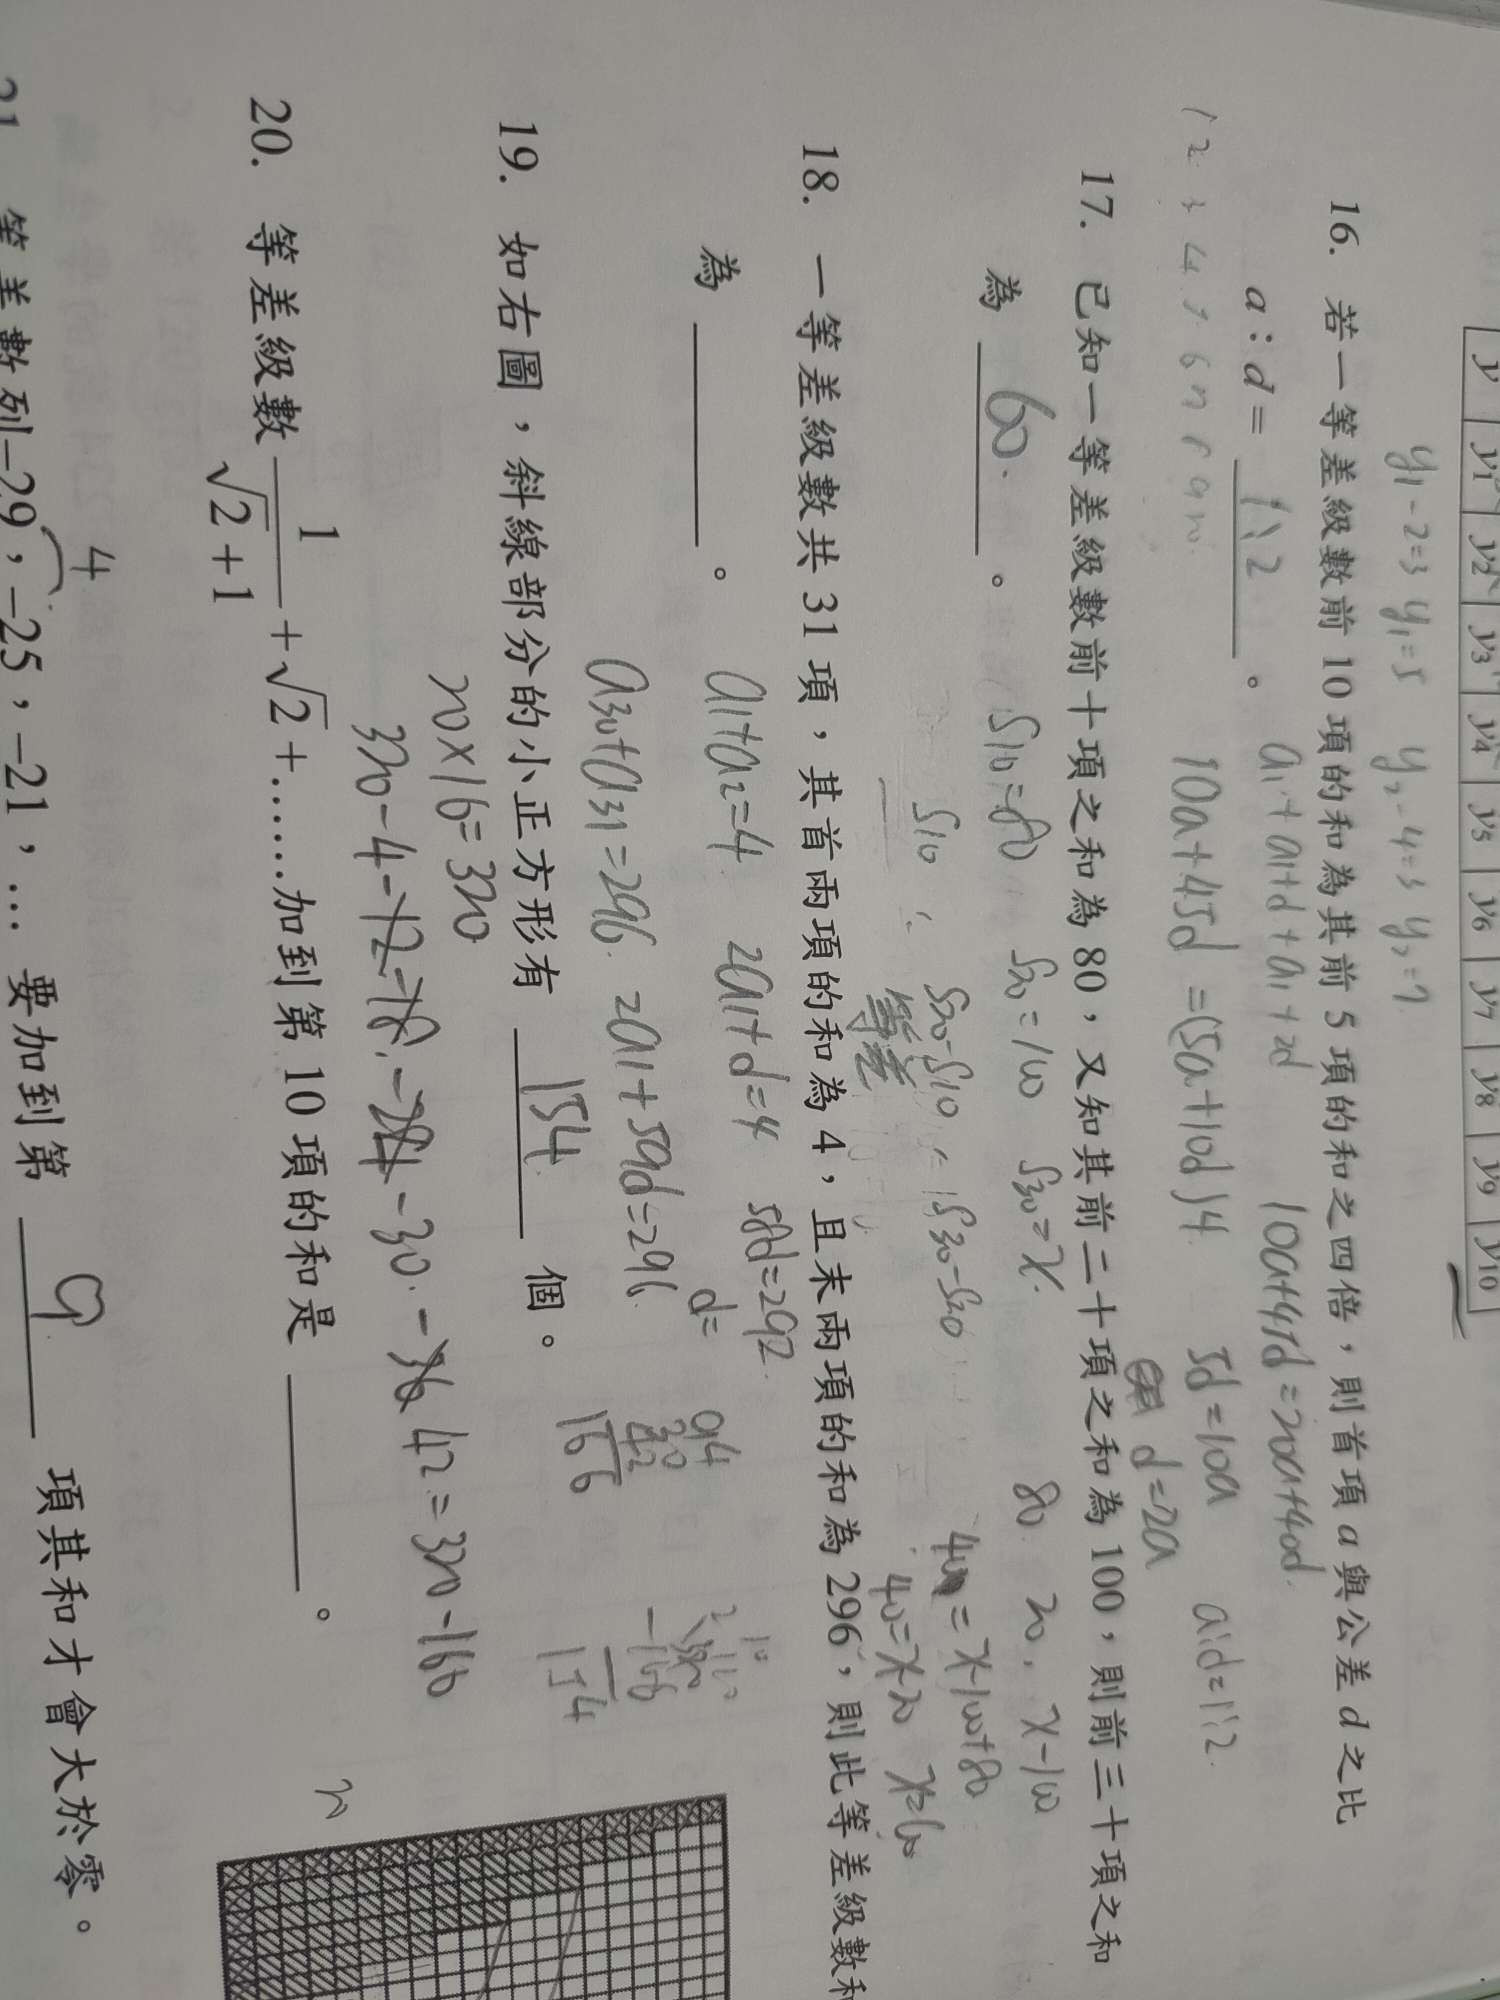 y y1 y2 y3 y4 y5 y6 y7 y8 y9 y10
y1-2=3 y1=5 y2-4=3 y2=7
16. 若一等差級數前 10 項的和為其前 5 項的和之四倍，則首項 a 與公差 d 之比
a：d = 1:2 。 a1+a1+d+a1+2d 10a+45d=20a+40d.
10a+45d=(5a+10d)4 5d=10a a:d=1:2.
d=2a
17. 已知一等差級數前十項之和為 80，又知其前二十項之和為 100，則前三十項之和
為 60. 。 S10=80 S20=100 S30=x. 80 20. x-100
S10 , S20-S10 , S30-S20 40=x-100+80
等差 40=x-20 x=60
18. 一等差級數共 31 項，其首兩項的和為 4，且末兩項的和為 296，則此等差級數和
為 。 a1+a2=4 2a1+d=4 58d=292.
d=
a30+a31=296. 2a1+59d=296.
19. 如右圖，斜線部分的小正方形有 154 個。
94
30
42
166
-166
154
20×16=320
320-4-12-18.-24-30.-36 42=320-166
20. 等差級數 1/(√2+1) + √2 + ……加到第 10 項的和是 。
4
21. 等差數列−29，−25，−21，… 要加到第 9 項其和才會大於零。